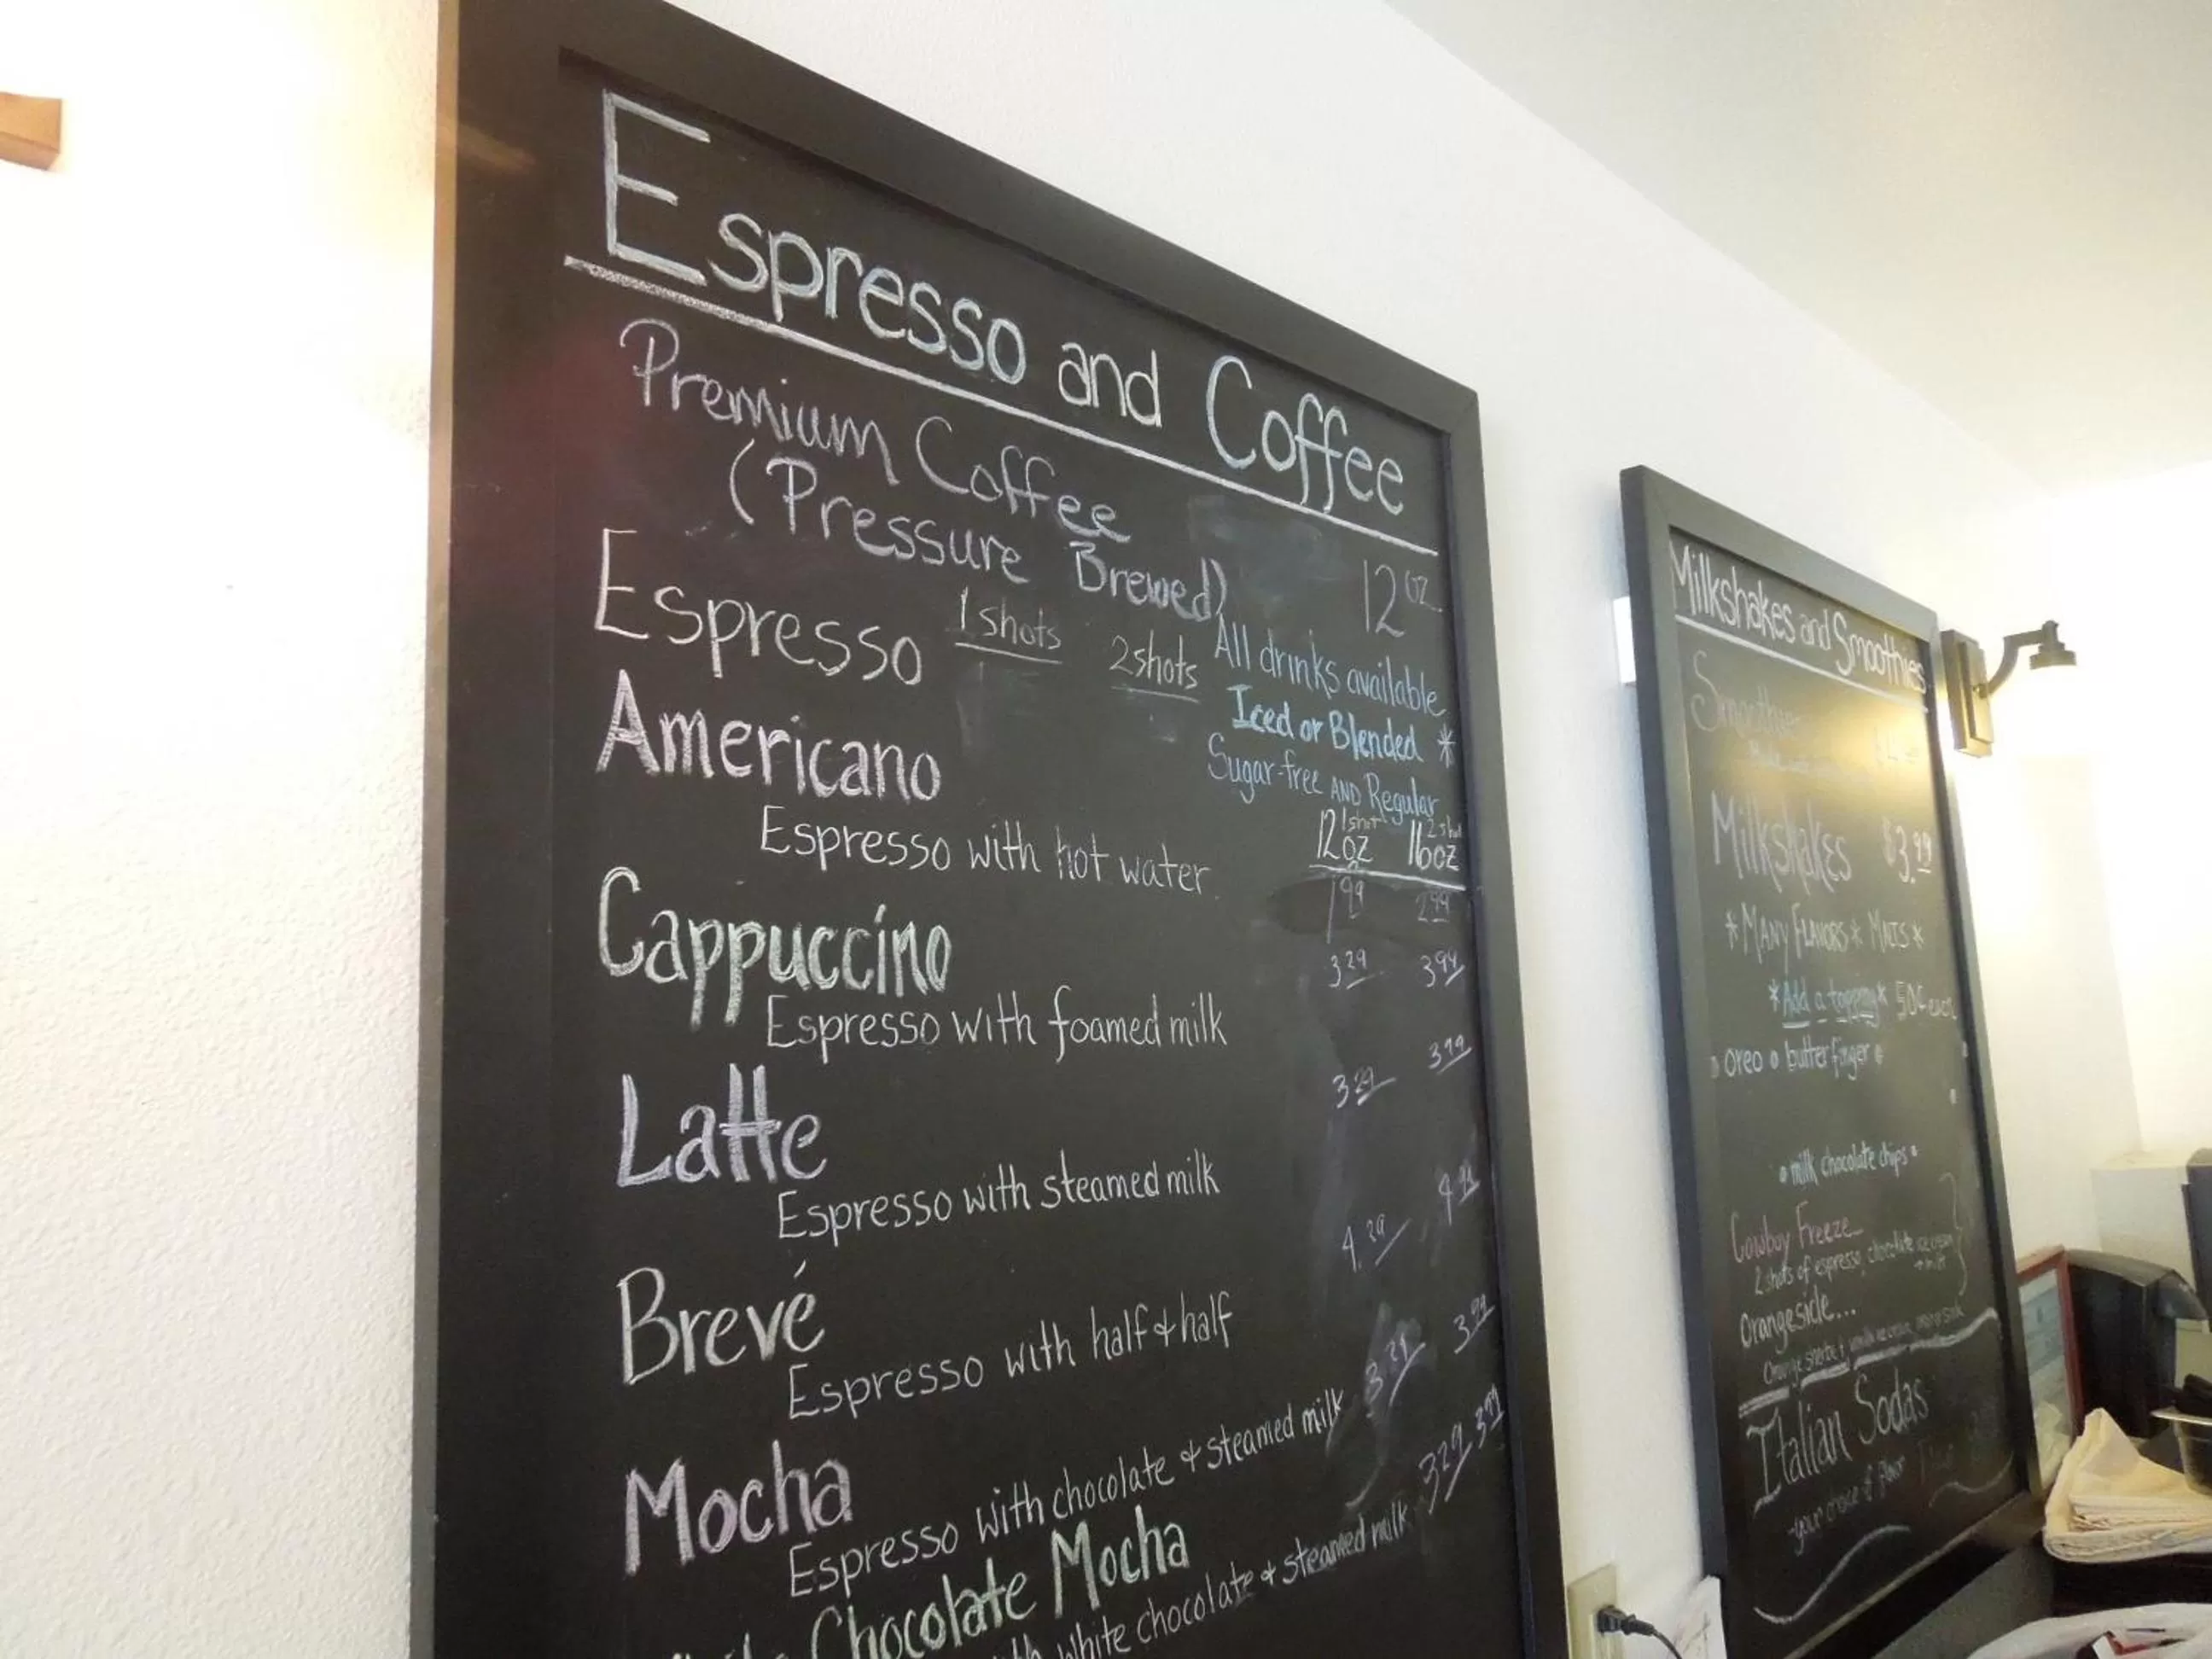 Espresso and Coffee
Premium Coffee
(Pressure Brewed)
12 oz
Espresso 1 shots 2 shots
All drinks available
Iced or Blended *
Sugar-free AND Regular
Americano
Espresso with hot water
1 shot 2 shot
12oz 16oz
1.99 2.99
Cappuccino
3.29 3.99
Espresso with foamed milk
Latte
3.29 3.99
Espresso with steamed milk
Brevé
4.29
Espresso with half & half
Mocha
3.29 3.99
Espresso with chocolate & steamed milk
Chocolate Mocha
3.29 3.99
white chocolate & steamed milk
Milkshakes and Smoothies
Smoothies
Milkshakes $3.99
*MANY FLAVORS* MALTS*
*Add a topping* 50¢ each
oreo • butterfinger •
• milk chocolate chips •
Cowboy Freeze
2 shots of espresso, chocolate ice cream
+ milk
Orangesicle...
Orange sherbet, vanilla ice cream,
Italian Sodas
-your choice of flavor